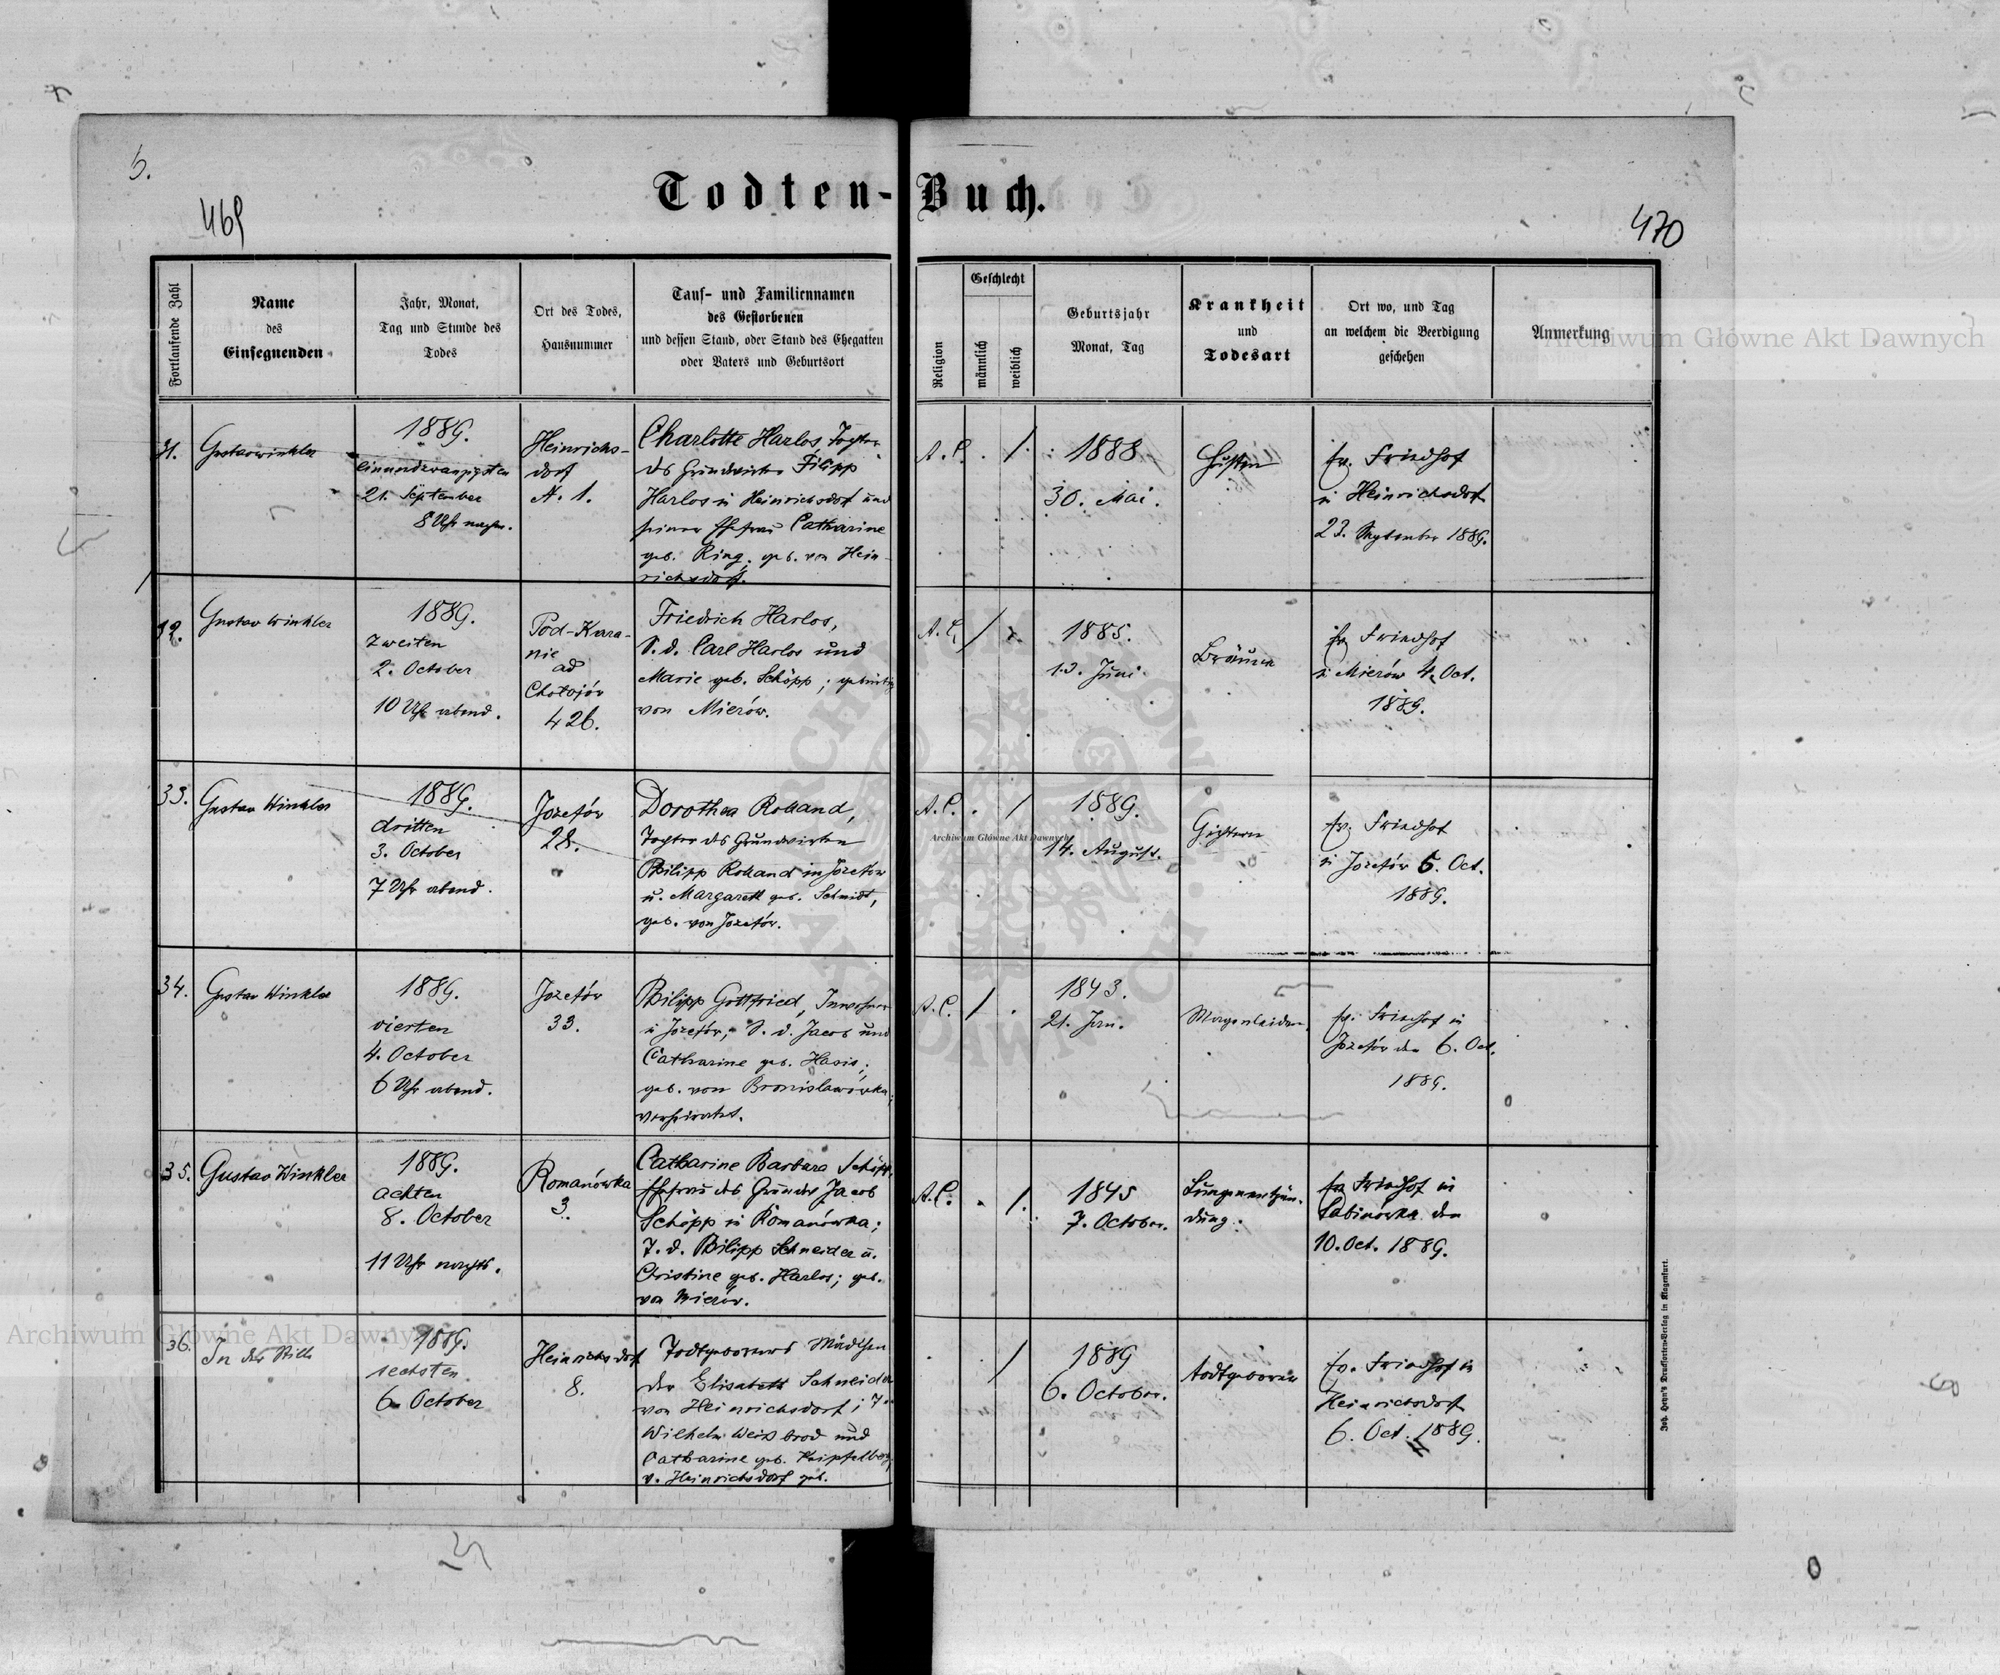 5.
469
Todten-Buch.
470
Fortlaufende Zahl
Name
des
Einsegnenden
Jahr, Monat,
Tag und Stunde des
Todes
Ort des Todes,
Hausnummer
Tauf- und Familiennamen
des Gestorbenen
und dessen Stand, oder Stand des Ehegatten
oder Vaters und Geburtsort
Religion
Geschlecht
männlich
weiblich
Geburtsjahr
Monat, Tag
Krankheit
und
Todesart
Ort wo, und Tag
an welchem die Beerdigung
geschehen
Anmerkung
31.
Gustav Winkler
1889.
einundzwanzigsten
21. September
8 Uhr nachm.
Heinrichs-
dorf
N. 1.
Charlotte Harlos, Tochter
des Grundwirten Filipp
Harlos in Heinrichsdorf und
seiner Ehefrau Catharine
geb. Ring, geb. von Hein-
richsdorf.
A. C. . /
1888
30. Mai.
Husten
ev. Friedhof
in Heinrichsdorf
23. September 1889.
32.
Gustav Winkler
1889.
zweiten
2. October
10 Uhr abend.
Pod-Kura-
nie
ad
Chotojów
426.
Friedrich Harlos,
S. d. Carl Harlos und
Marie geb. Schöpp; gebürtig
von Mierów.
A. C. /
1885.
13. Juni
Bräune
ev. Friedhof
in Mierów 4. Oct.
1889.
33.
Gustav Winkler
1889.
dritten
3. October
7 Uhr abend.
Jozefów
28.
Dorothea Rolland,
Tochter des Grundwirten
Philipp Rolland in Jozefów
u. Margareth geb. Schmidt,
geb. von Jozefów.
A. C. . /
1889.
14. August.
ev. Friedhof
in Jozefów 5. Oct.
1889.
34.
Gustav Winkler
1889.
vierten
4. October
6 Uhr abend.
Jozefów
33.
Philipp Gottfried, Inwohner
in Jozefów, S. d. Jacob und
Catharine geb. Hasis;
geb. von Bronislawówka;
verheiratet.
A. C. / .
1843.
21. Jan.
Magenleiden
ev. Friedhof in
Jozefów den 6. Oct.
1889.
35.
Gustav Winkler
1889.
achten
8. October
11 Uhr nachts.
Romanówka
3.
Catharine Barbara Schöpp,
Ehefrau des Grundw. Jacob
Schöpp in Romanówka;
T. d. Philipp Schneider u.
Christine geb. Harlos; geb.
von Mierów.
A. C. . /.
1845
7. October.
Lungenentzün-
dung.
ev. Friedhof in
Sabinówka den
10. Oct. 1889.
36.
In der Stille
1889.
sechsten
6. October
Heinrichsdorf
8.
Todtgeborenes Mädchen
der Elisabeth Schneider
von Heinrichsdorf; T.
Wilhelm Weisbrod und
Catharine geb. Kripfelberg
v. Heinrichsdorf geb.
/
1889
6. October.
todtgeboren
ev. Friedhof in
Heinrichsdorf
6. Oct. 1889.
Joh. Heyn's Drucksorten-Verlag in Klagenfurt.
Archiwum Główne Akt Dawnych
Archiwum Główne Akt Dawnych
Archiwum Główne Akt Dawnych